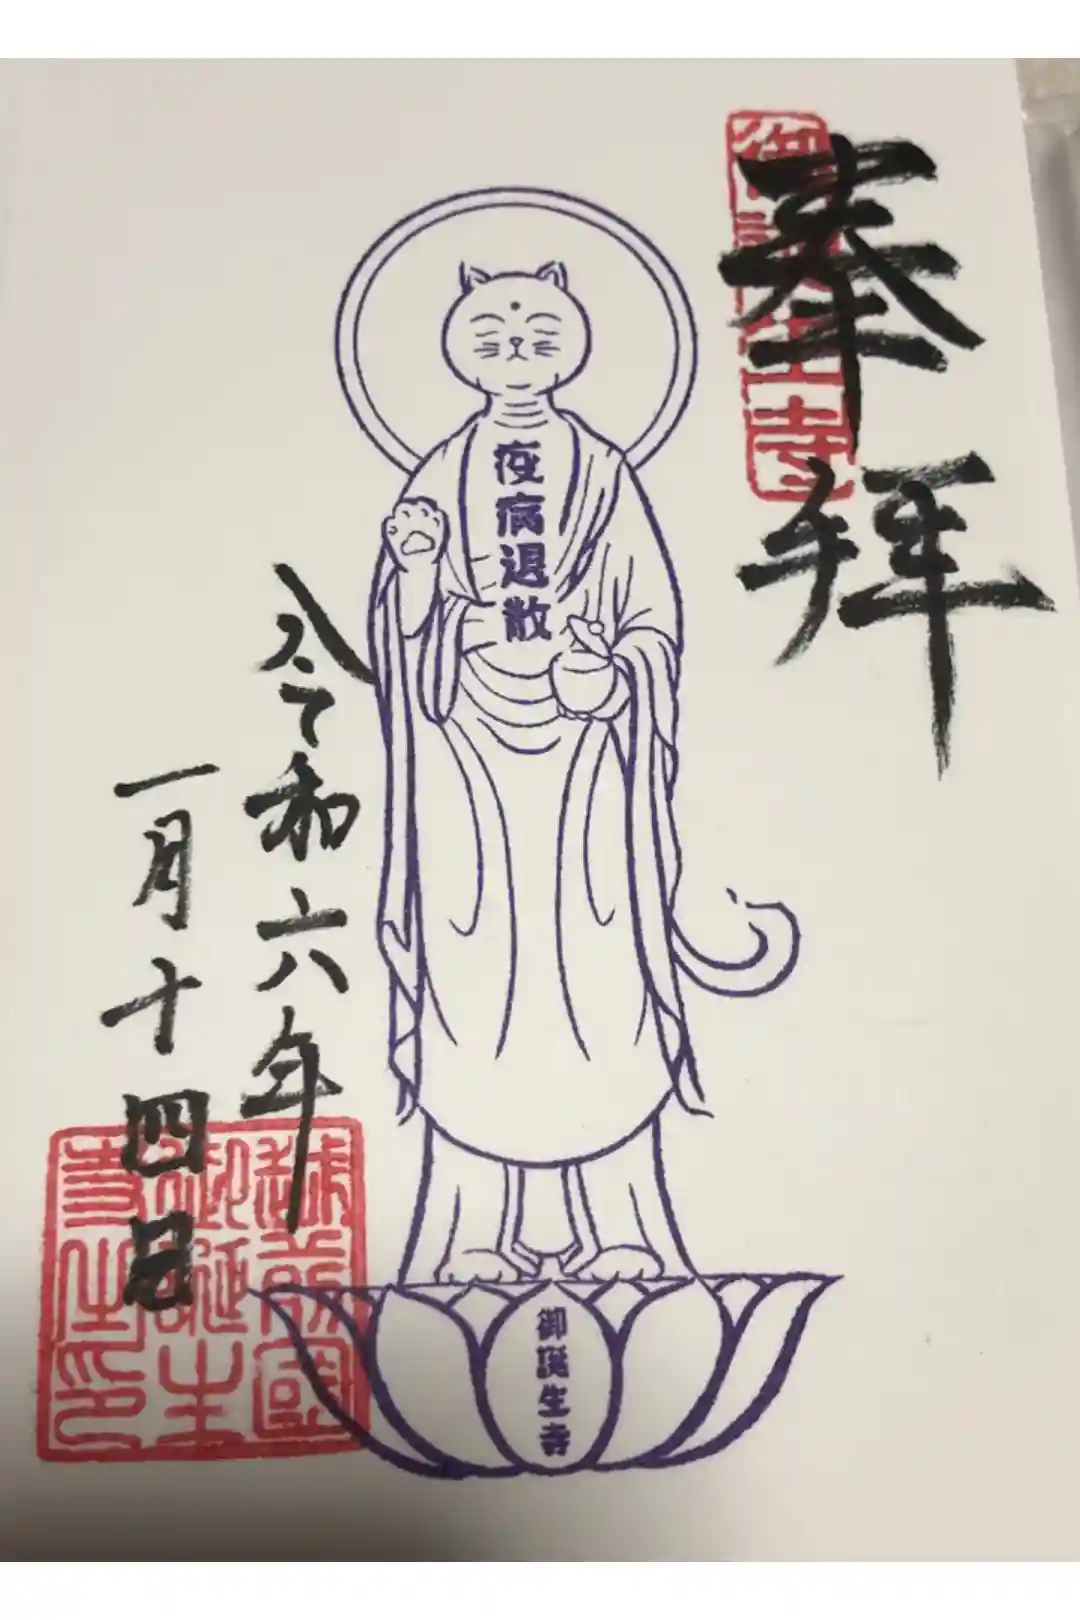 奉拝
御誕生寺
疫病退散
令和六年
一月十四日
御誕生寺
越前國
御誕生
寺住印